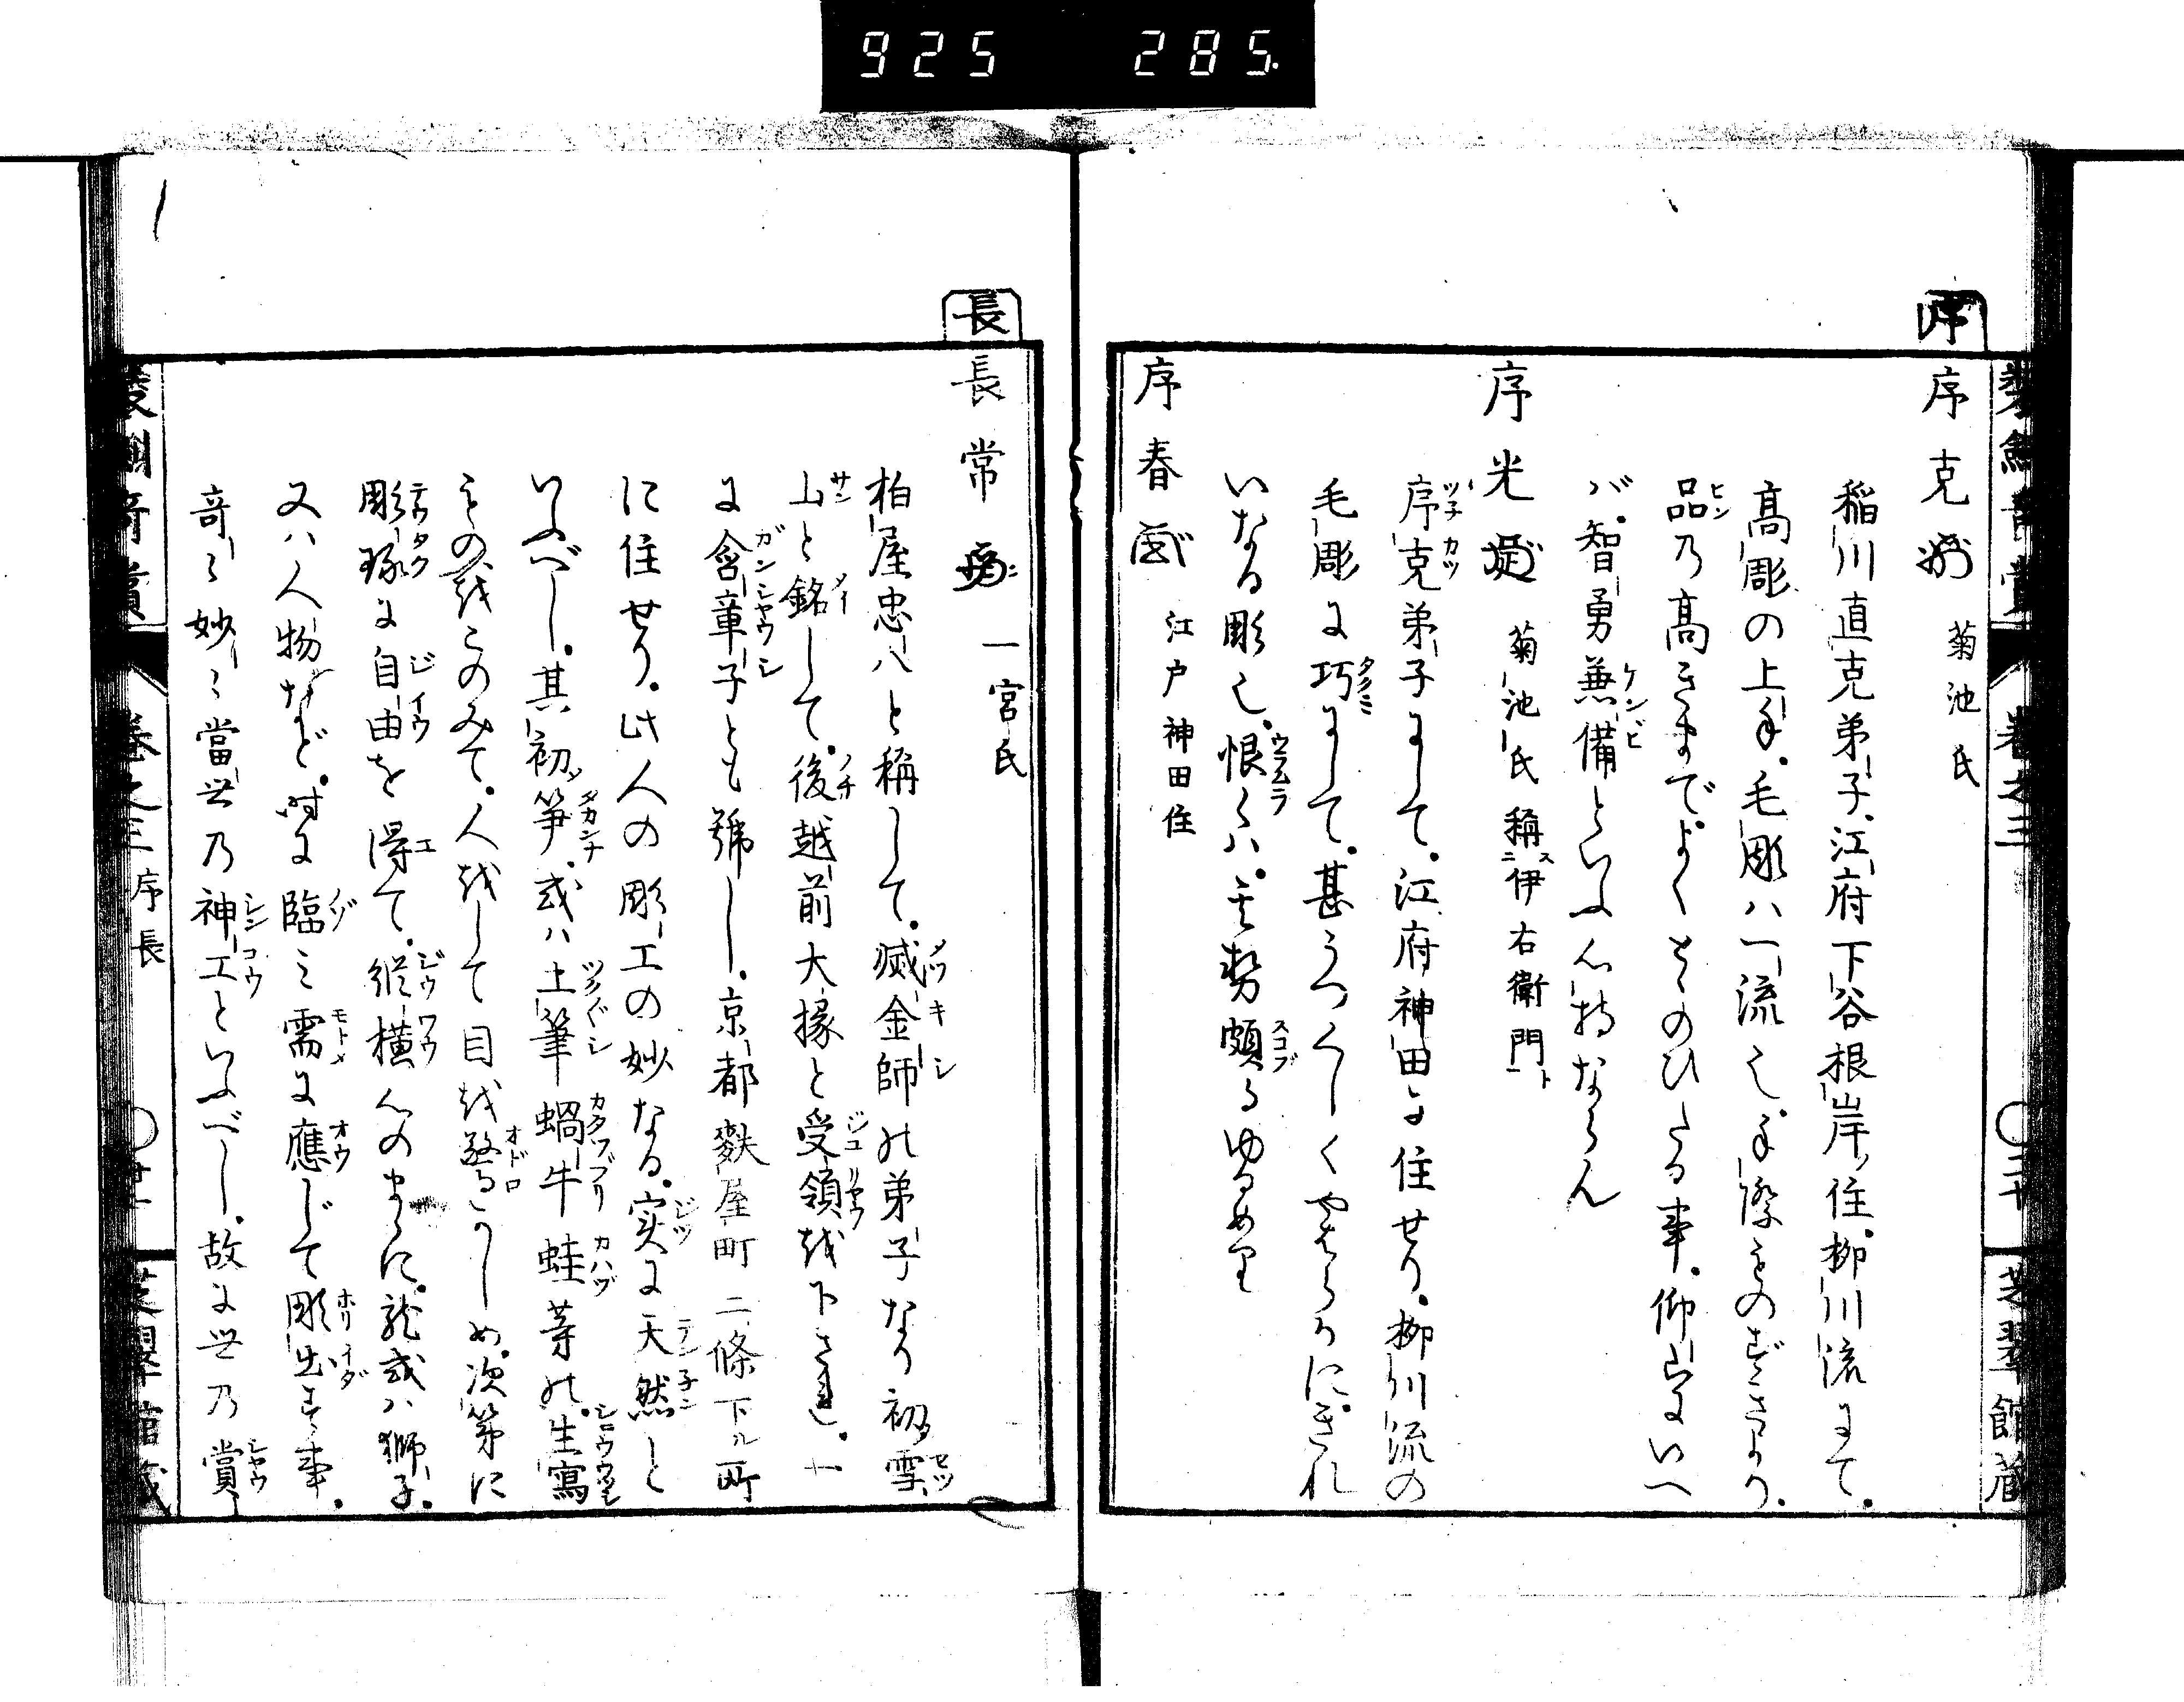 925 285.
序
序克 菊池氏
稲川直克弟子江府下谷根岸住柳川流にて
高彫の上手毛彫ハ一流也手際ものずきより
品乃高きまでよくとゝのひたる事仰山にいへ
バ智勇兼備といふ心持ならん
序光 菊池氏 稱伊右衛門
序克弟子にして江府神田に住せり柳川流の
毛彫に巧にして甚うつくしくやはらかにきれ
いなる彫也恨らくハ其勢頗るゆるめり
序春 江戸神田住
長
長常 一宮氏
柏屋忠八と稱して滅金師の弟子なり初雪
山と銘して後越前大掾と受領を下され
に含章子とも號し京都麩屋町二條下ル町
に住せり此人の彫工の妙なる実に天然と
いふべし其初笋或ハ土筆蝸牛蛙等の生寫
ものをこのみて人をして目を驚かしめ次第に
彫琢に自由を得て縦横心のまゝに龍或ハ獅子
又ハ人物など時に臨ミ需に應じて彫出す事
奇々妙々當世乃神工といふべし故に世乃賞
巻之三 序長
芝翠館蔵